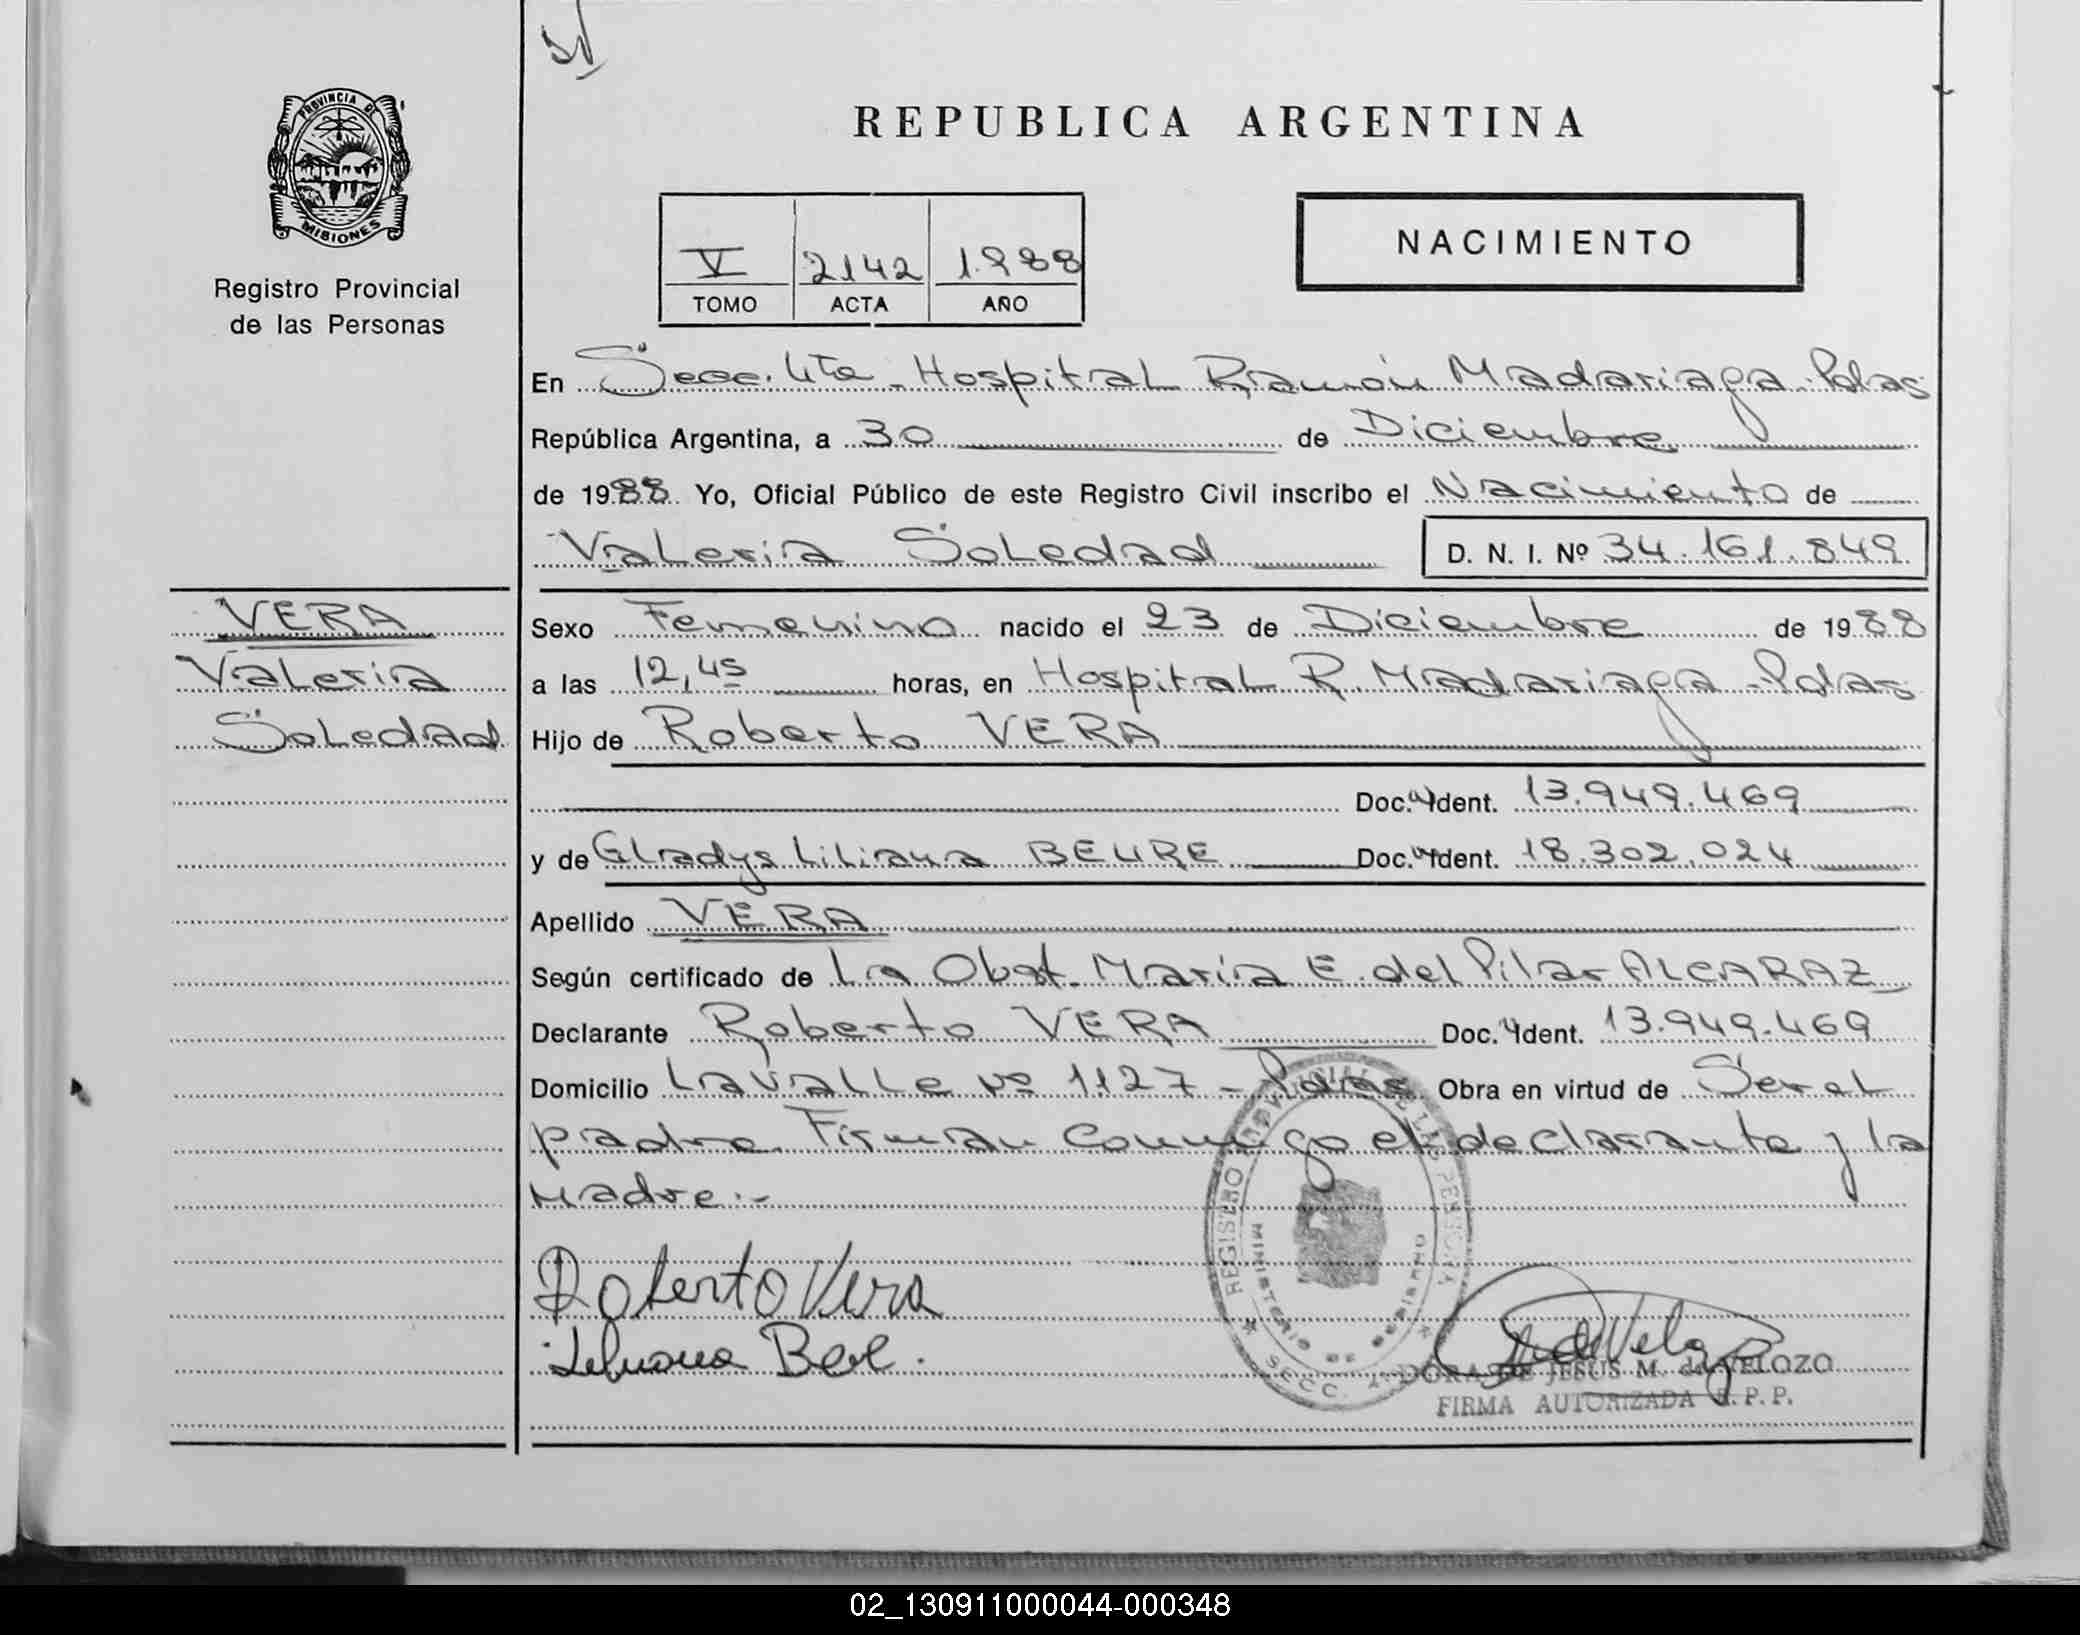 PROVINCIA DE
MISIONES
Registro Provincial
de las Personas
REPUBLICA ARGENTINA
V 2142 1.988
TOMO ACTA AÑO
NACIMIENTO
En Secc. 4ta - Hospital Ramón Madariaga - Pdas
República Argentina, a 30 de Diciembre
de 1988 Yo, Oficial Público de este Registro Civil inscribo el Nacimiento de
Valeria Soledad D. N. I. Nº 34.161.849
VERA
Valeria
Soledad
Sexo Femenino nacido el 23 de Diciembre de 1988
a las 12,45 horas, en Hospital R. Madariaga - Pdas
Hijo de Roberto VERA
Doc. Ident. 13.949.469
y de Gladys Liliana BEURE Doc. Ident. 18.302.024
Apellido VERA
Según certificado de La Obst. María E. del Pilar ALCARAZ
Declarante Roberto VERA Doc. Ident. 13.949.469
Domicilio Lavalle Nº 1127 - Pdas Obra en virtud de Ser el
padre. Firman Conmigo el declarante y la
Madre.-
Roberto Vera
REGISTRO PROVINCIAL DE LAS PERSONAS
MINISTERIO DE GOBIERNO
SECC. 4ª
DORA DE JESUS M. de VELOZO
FIRMA AUTORIZADA R.P.P.
02_130911000044-000348